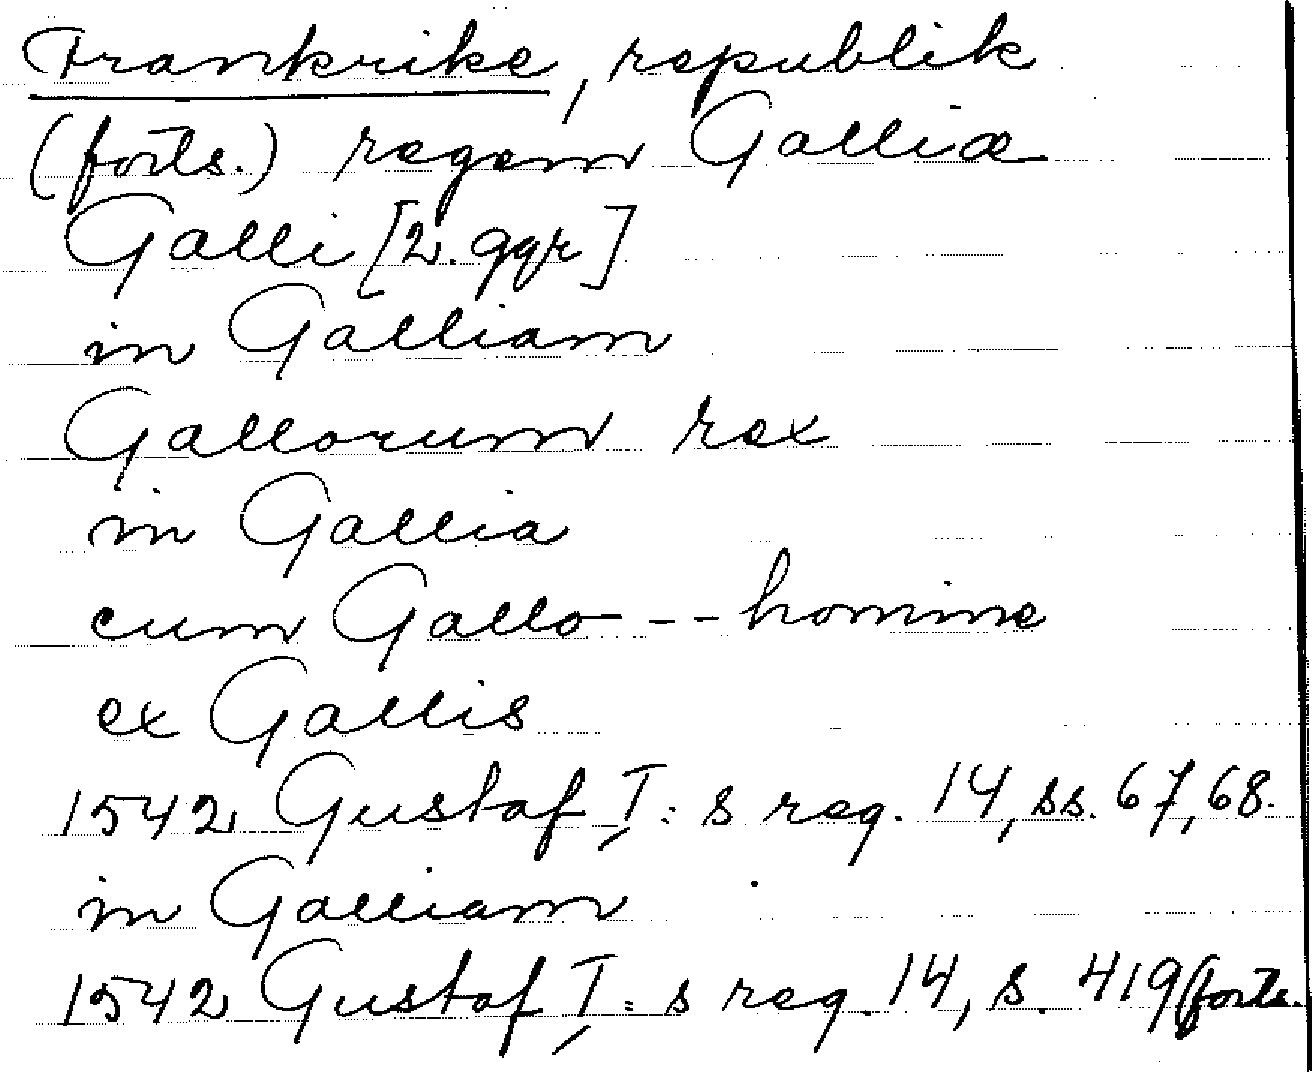 Frankrike, republik
(forts.) regem Galliæ
Galli [2. ggr]
in Galliam
Gallorum rex
in Gallia
cum Gallo -- homine
ex Gallis
1542 Gustaf I:s reg. 14, ss. 67, 68.
in Galliam
1542 Gustaf I:s reg. 14, s. 419 (forts.